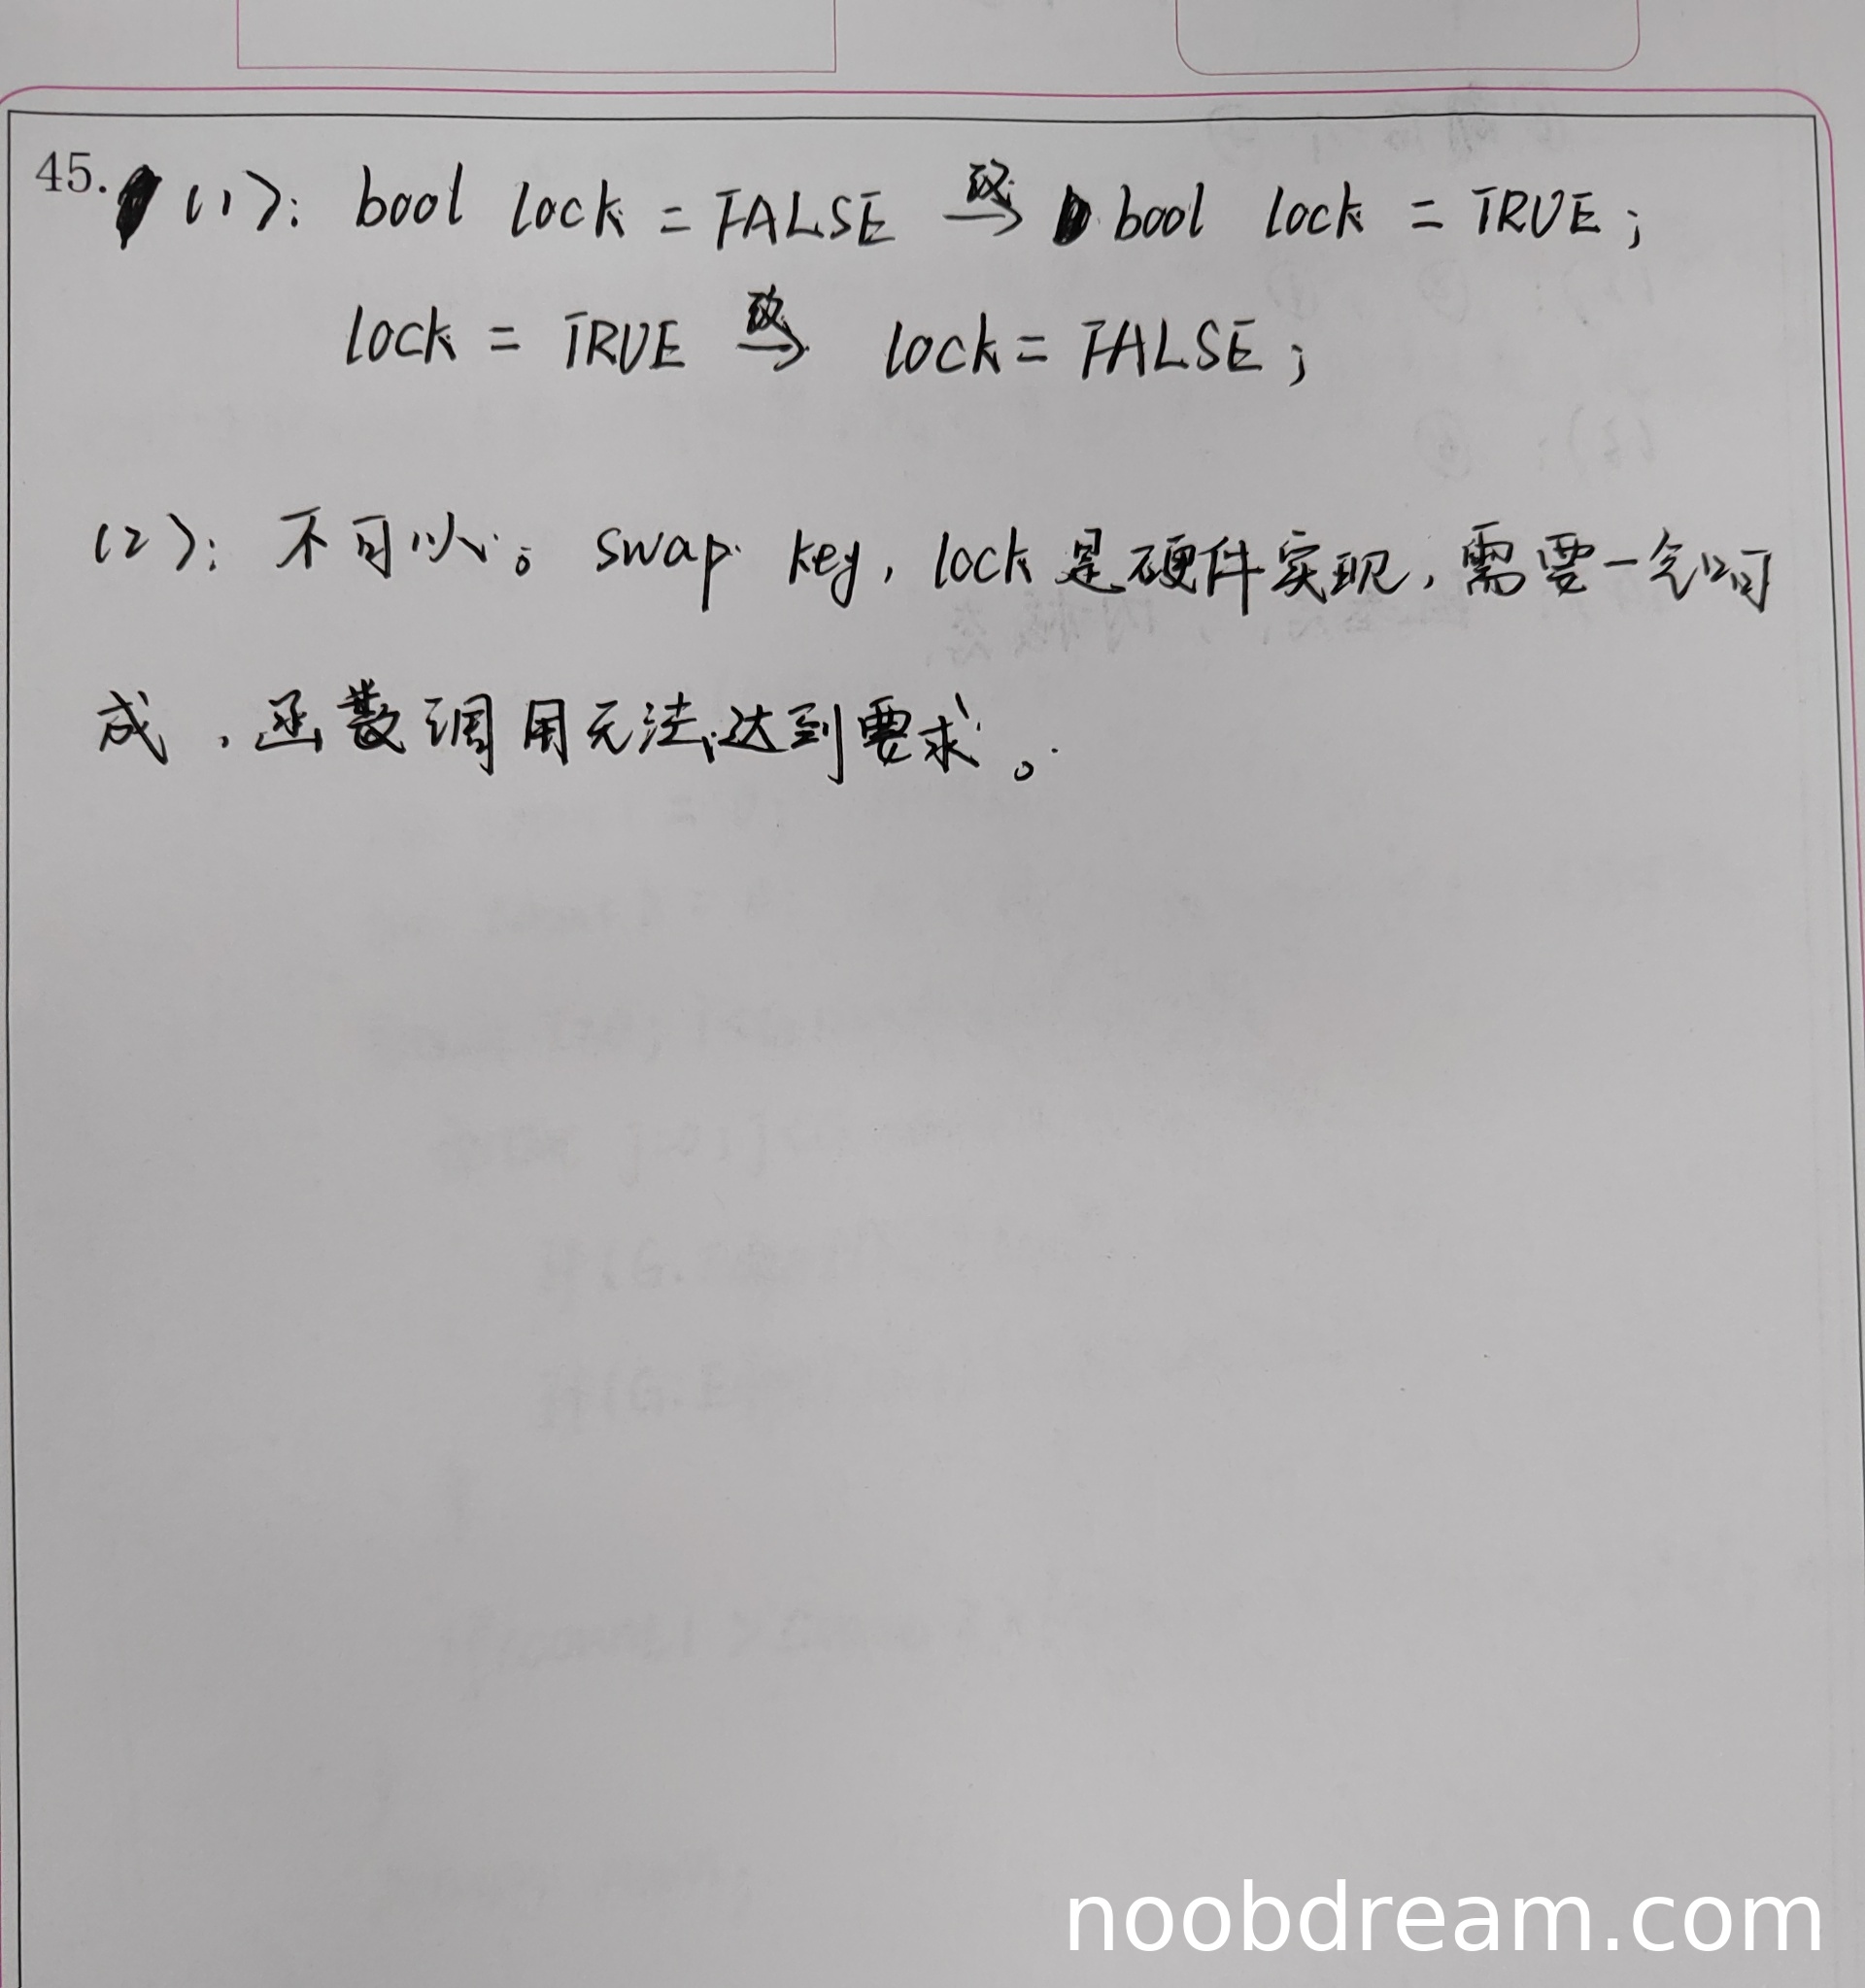 45. (1): bool lock = FALSE 改→ bool lock = TRUE;
lock = TRUE 改→ lock = FALSE;
(2): 不可以。swap key, lock 是硬件实现, 需要一气呵
成, 函数调用无法达到要求。
noobdream.com